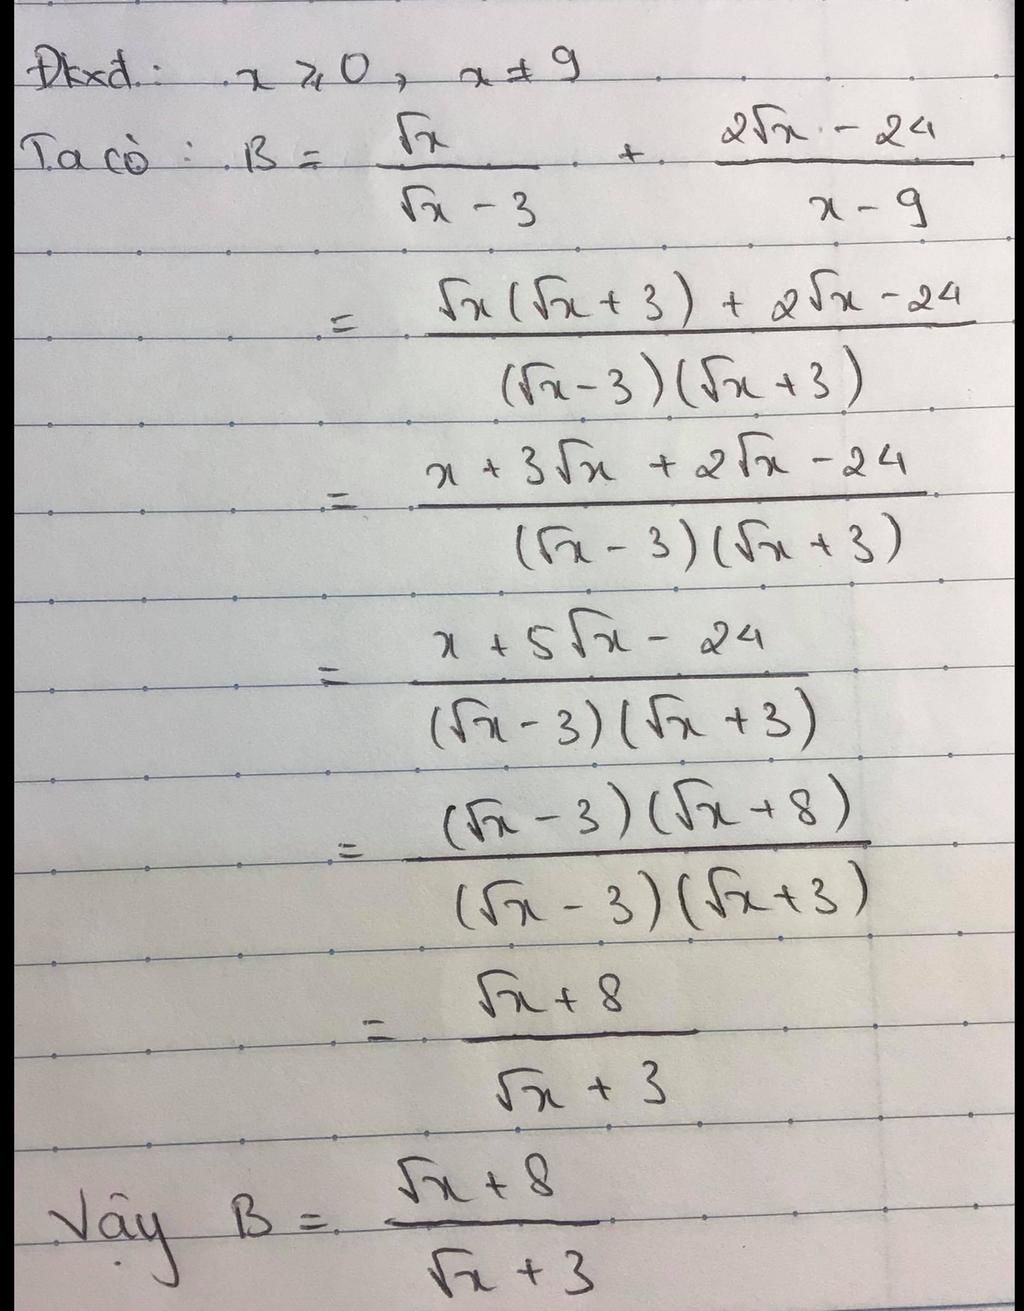 Đkxđ: x ⩾ 0, x ≠ 9
Ta có: B = √x / (√x - 3) + (2√x - 24) / (x - 9)
= (√x(√x + 3) + 2√x - 24) / ((√x - 3)(√x + 3))
= (x + 3√x + 2√x - 24) / ((√x - 3)(√x + 3))
= (x + 5√x - 24) / ((√x - 3)(√x + 3))
= ((√x - 3)(√x + 8)) / ((√x - 3)(√x + 3))
= (√x + 8) / (√x + 3)
Vậy B = (√x + 8) / (√x + 3)